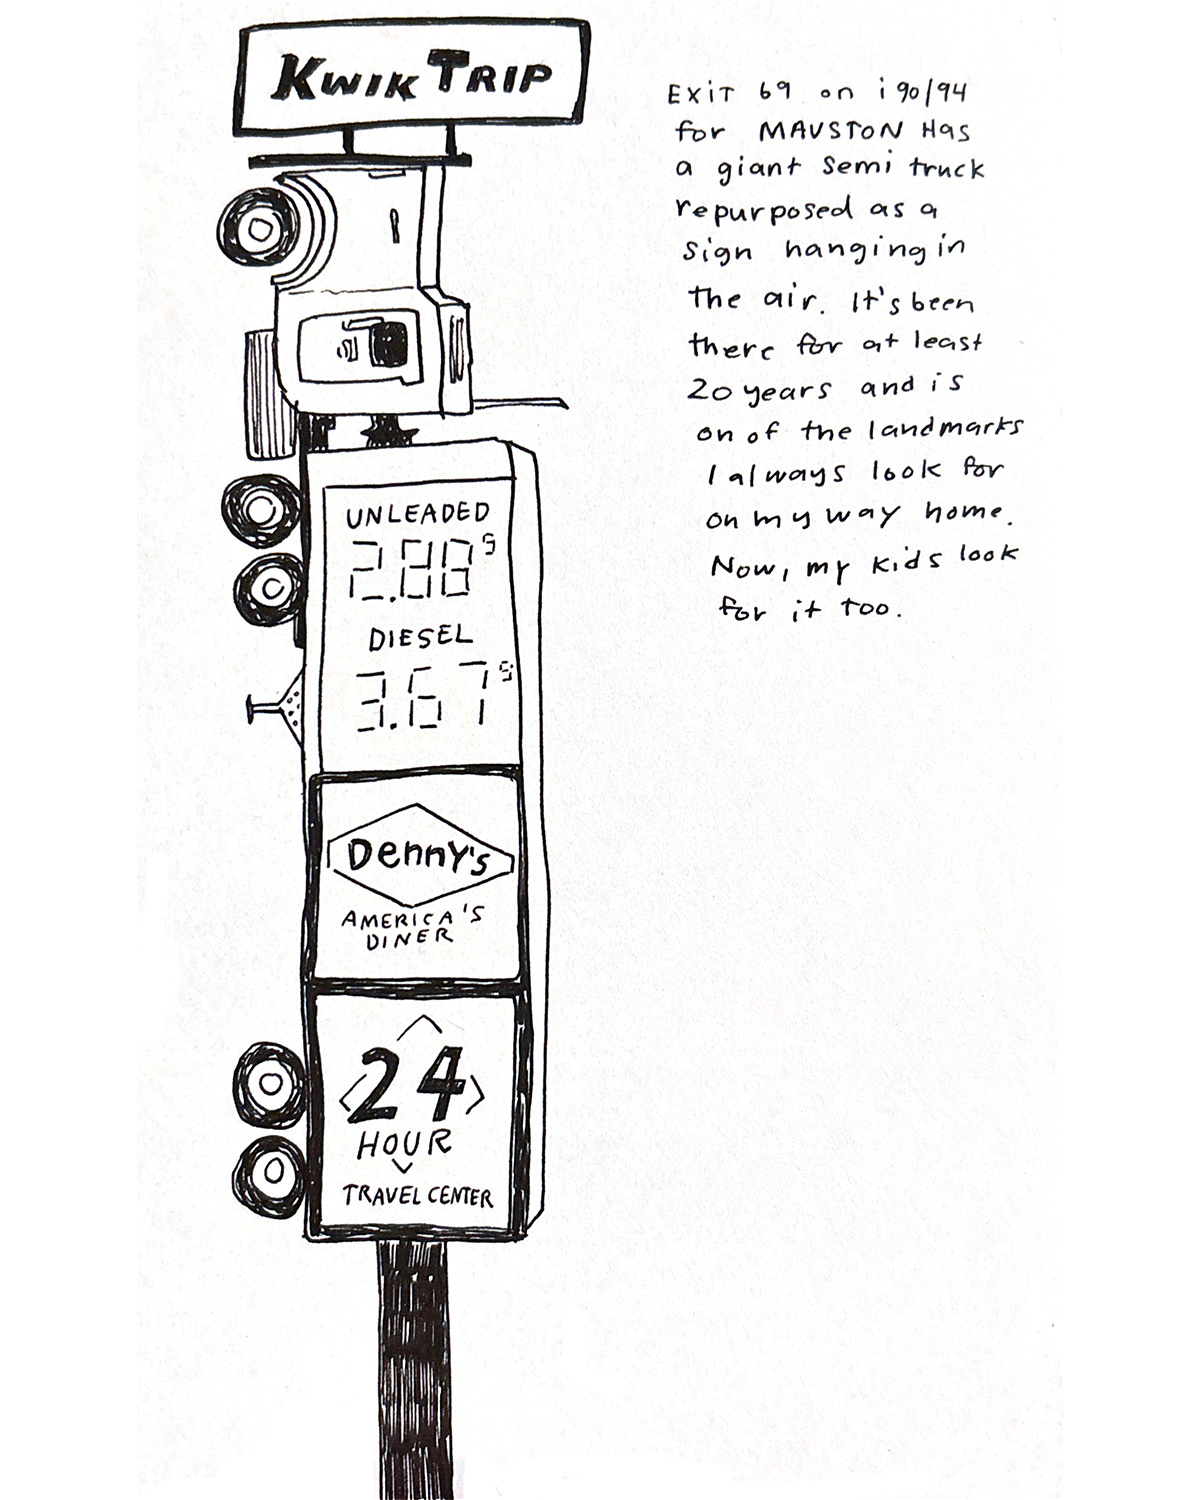 KWIK TRIP
UNLEADED
2.88 9
DIESEL
3.67 9
Denny's
AMERICA'S
DINER
24
HOUR
TRAVEL CENTER
EXiT 69 on i90/94
for MAUSTON Has
a giant semi truck
repurposed as a
sign hanging in
the air. It's been
there for at least
20 years and is
on of the landmarks
I always look for
on my way home.
Now, my kids look
for it too.